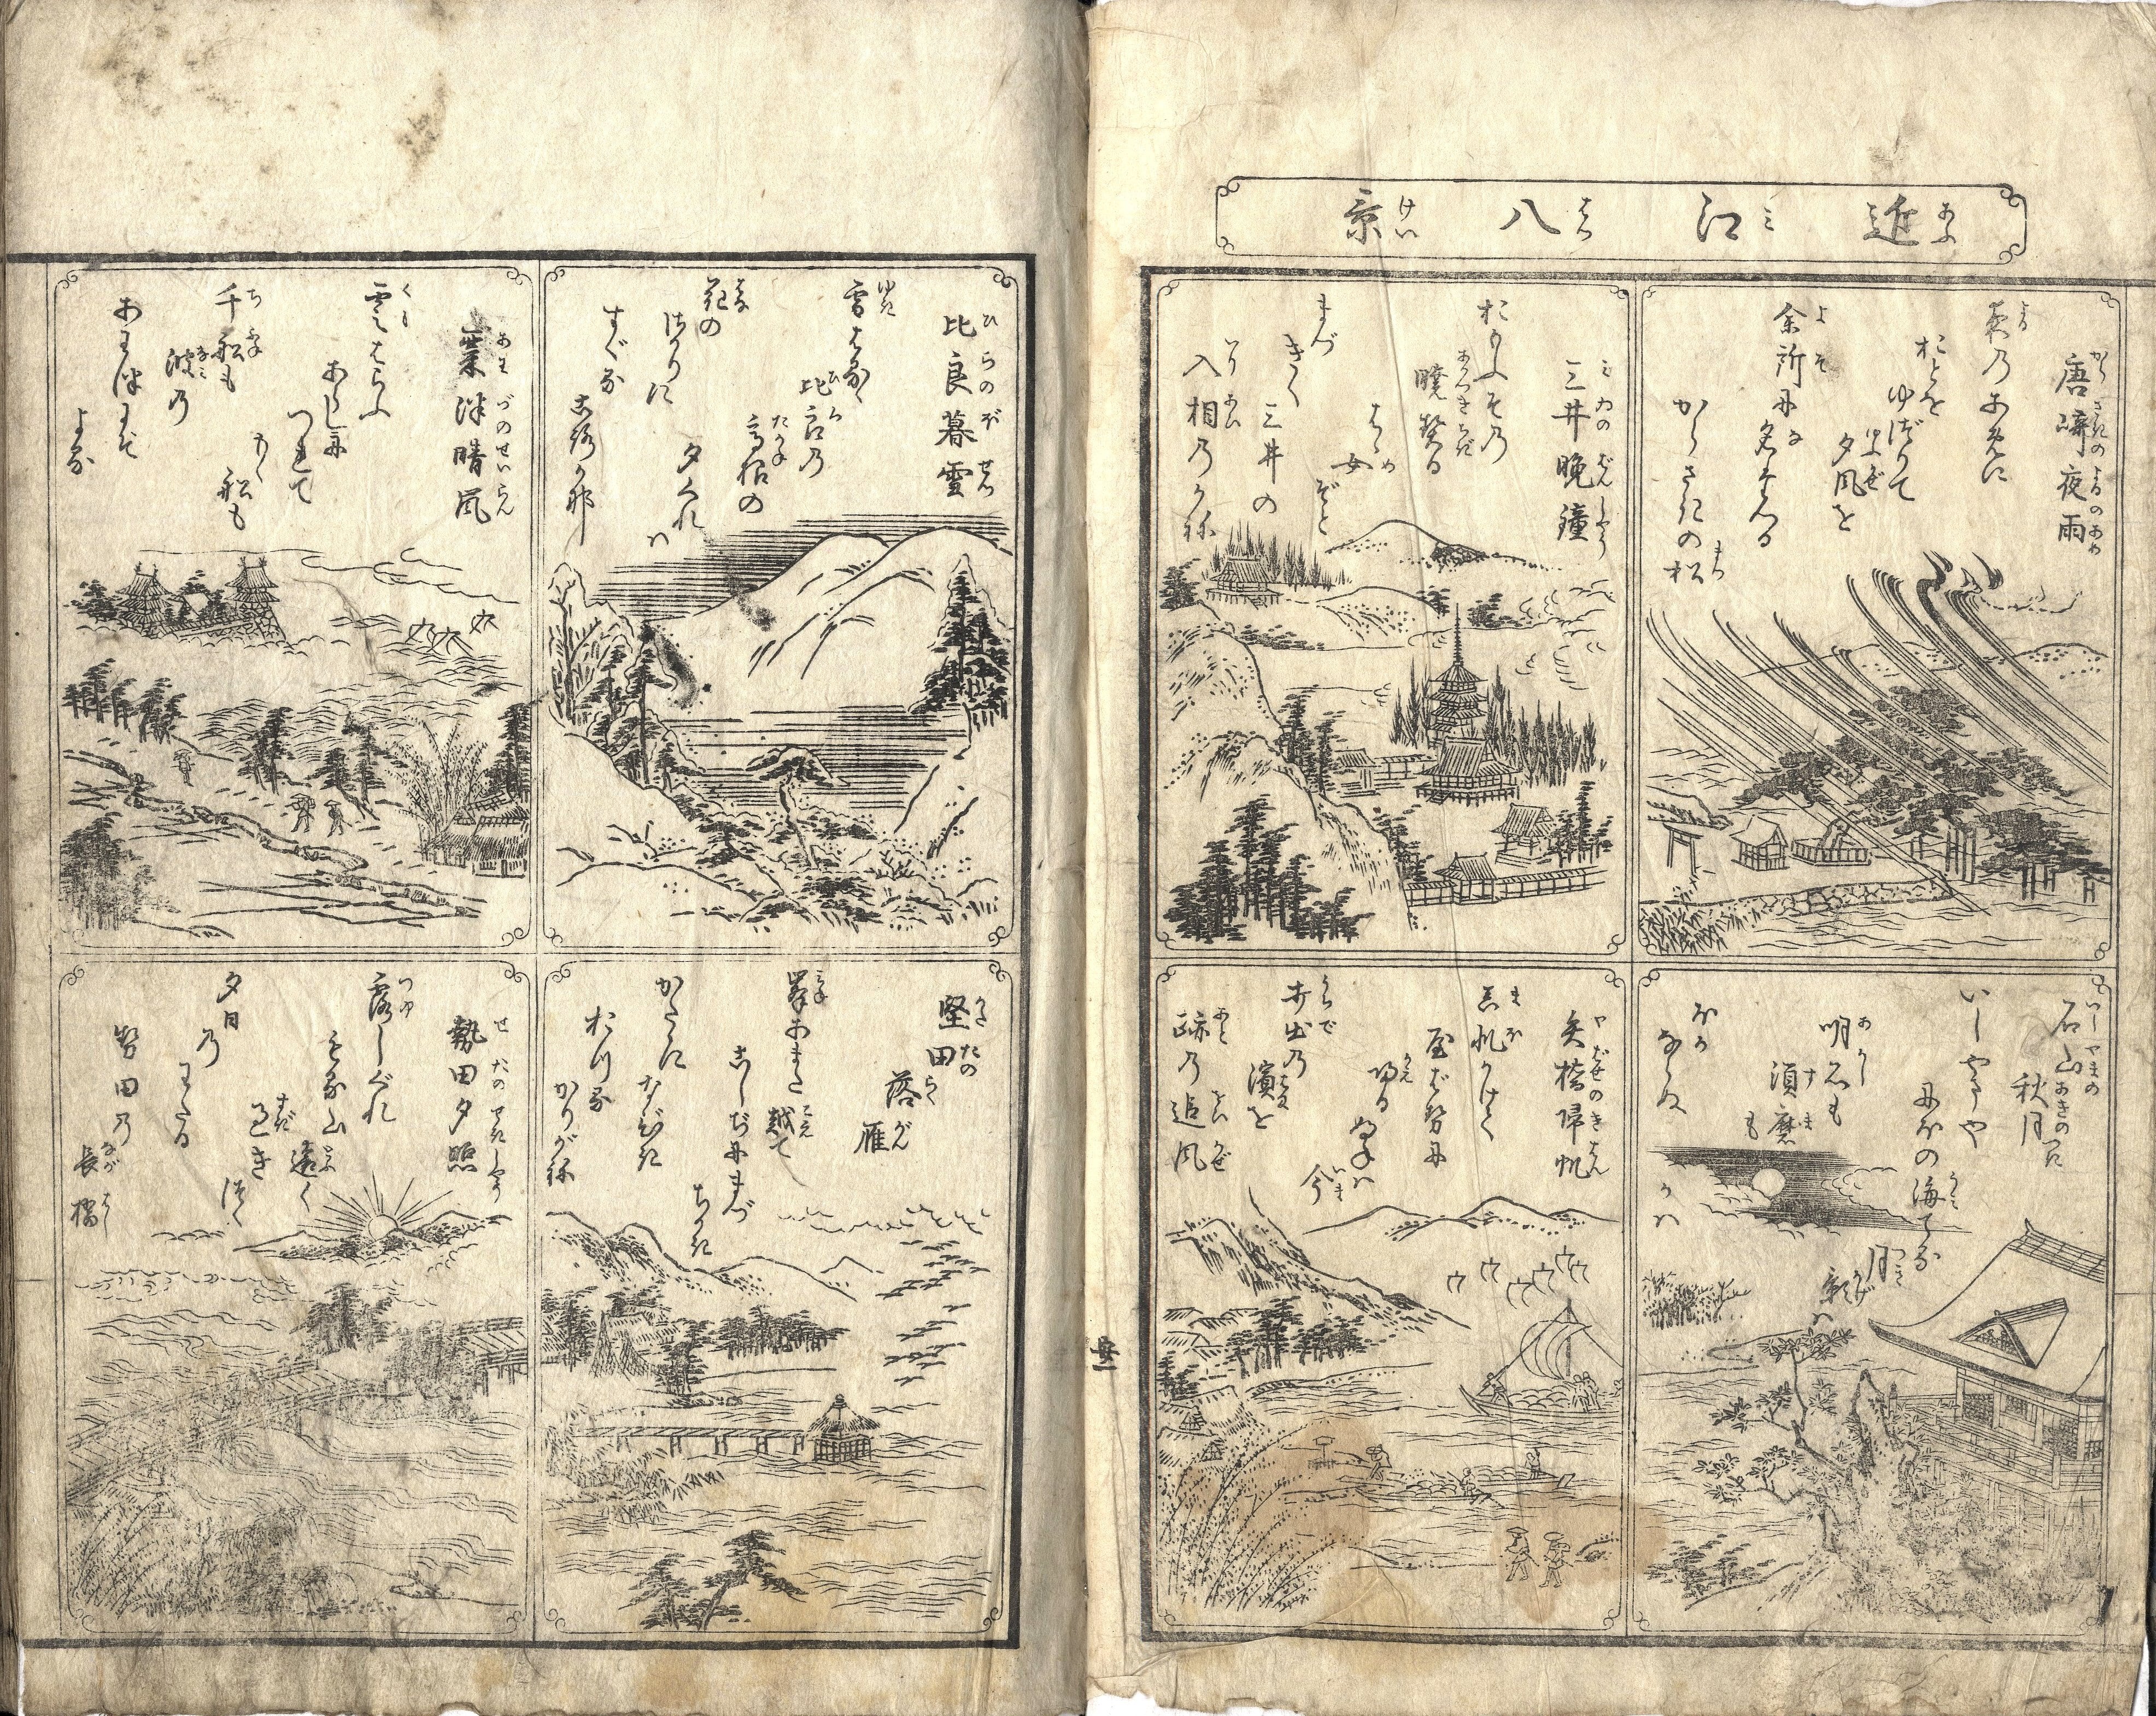 近江八景
唐崎夜雨
夜乃あめに
おとを
ゆづりて
夕風を
余所に名たつる
からさきの松
三井晩鐘
おもふその
暁契る
はじめぞと
まづ
きく
三井の
入相乃かね
石山
秋月
いしやまや
にほの海てる
月影ハ
明石も
須磨も
ほか
ならぬ
かハ
矢橋帰帆
真帆かけて
矢ばせに
帰る
舟ハ
今
打出乃
濱を
跡乃追風
比良暮雪
雪はるゝ
比良乃
高根の
夕ぐれハ
花の
さかりに
すぐる
ころかな
粟津晴嵐
雲はらふ
あらしに
つれて
もゝ船も
千船も
波乃
あわづにぞ
よる
堅田
落雁
峯あまた
越て
こしぢにまづ
ちかき
かたゝに
なびき
おつる
かりがね
勢田夕照
露しぐれ
もる山
遠く
過き
つゝ
夕日
乃
わたる
勢田乃
長橋